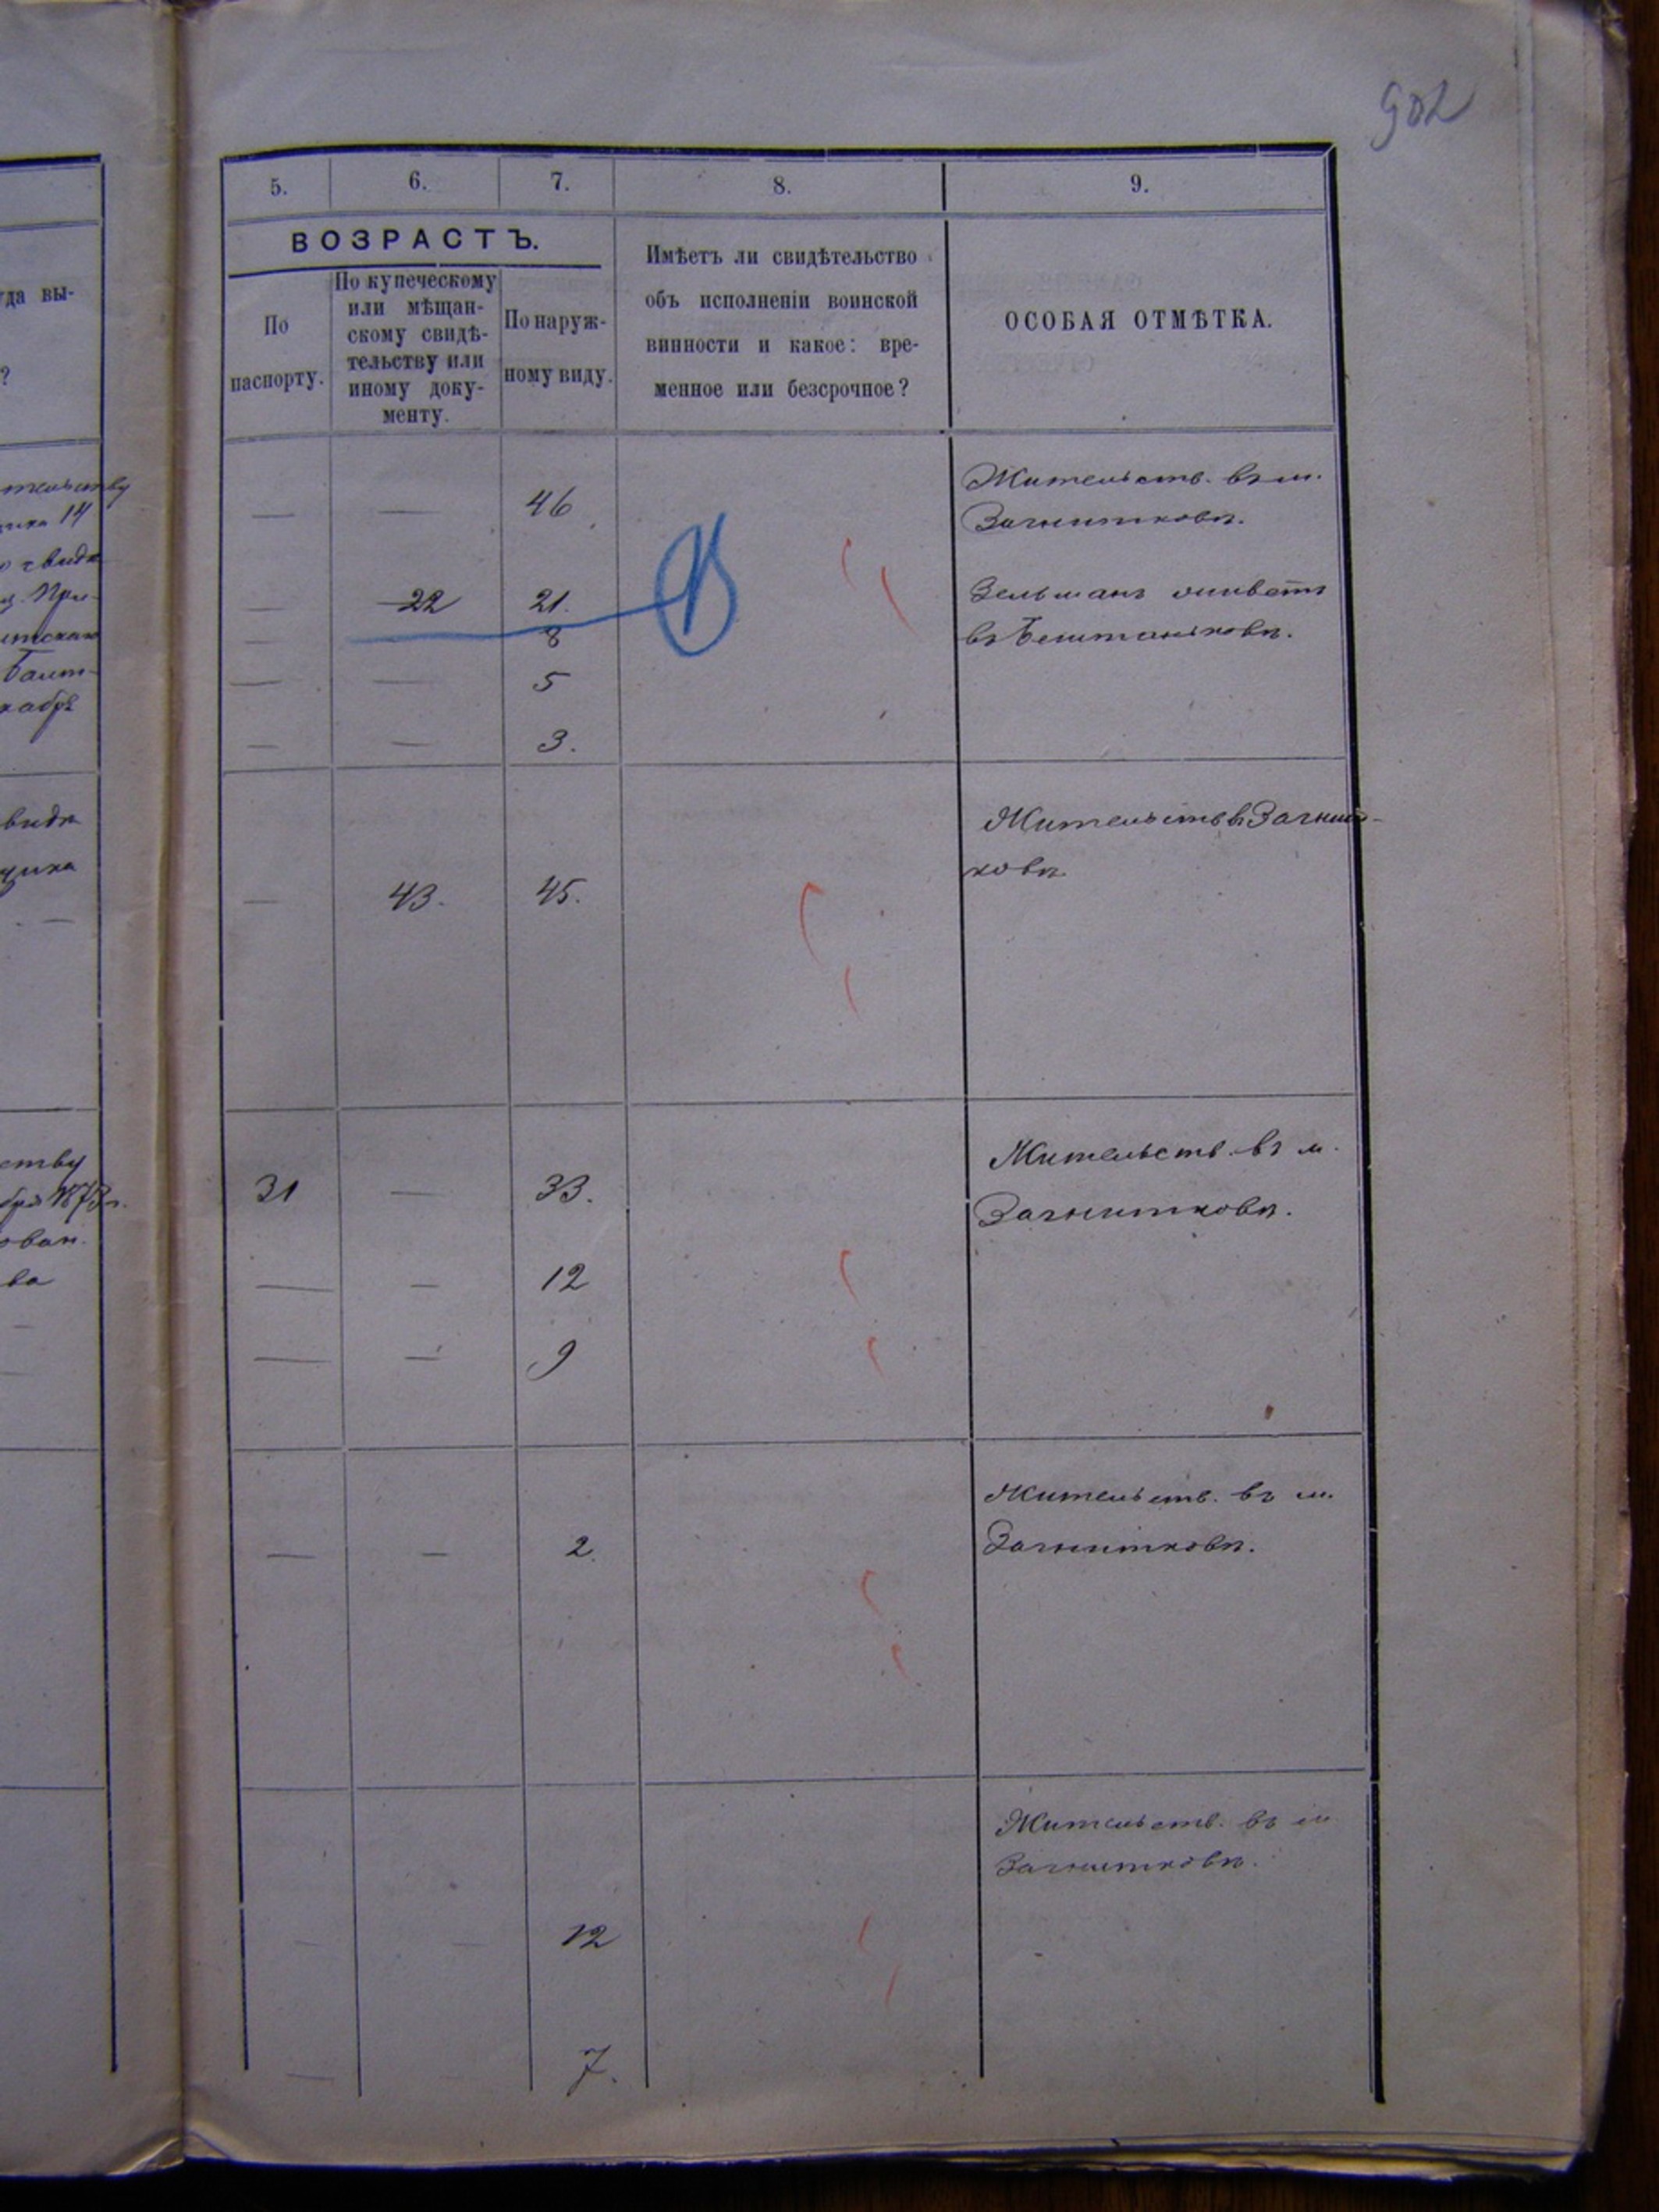 902
5. 6. 7. 8. 9.
ВОЗРАСТЪ.
По
паспорту.
По купеческому
или мѣщан-
скому свидѣ-
тельству или
иному доку-
менту.
По наруж-
ному виду.
Имѣетъ ли свидѣтельство
объ исполненіи воинской
винности и какое: вре-
менное или безсрочное?
ОСОБАЯ ОТМѢТКА.
вы-
?
14
Пре-
— — 46
Жительств. въ м.
Загнитковѣ.
— 22 21.
— 8
— — 5
— — 3.
Зельманъ живетъ
въ
— 43. 45.
Жительств въ Загнит-
ковѣ
31 — 33.
— — 12
— — 9
Жительств. въ м.
Загнитковѣ.
— — 2.
Жительств. въ м.
Загнитковѣ.
— — 12
— 7.
Жительств. въ м
Загнитковѣ.